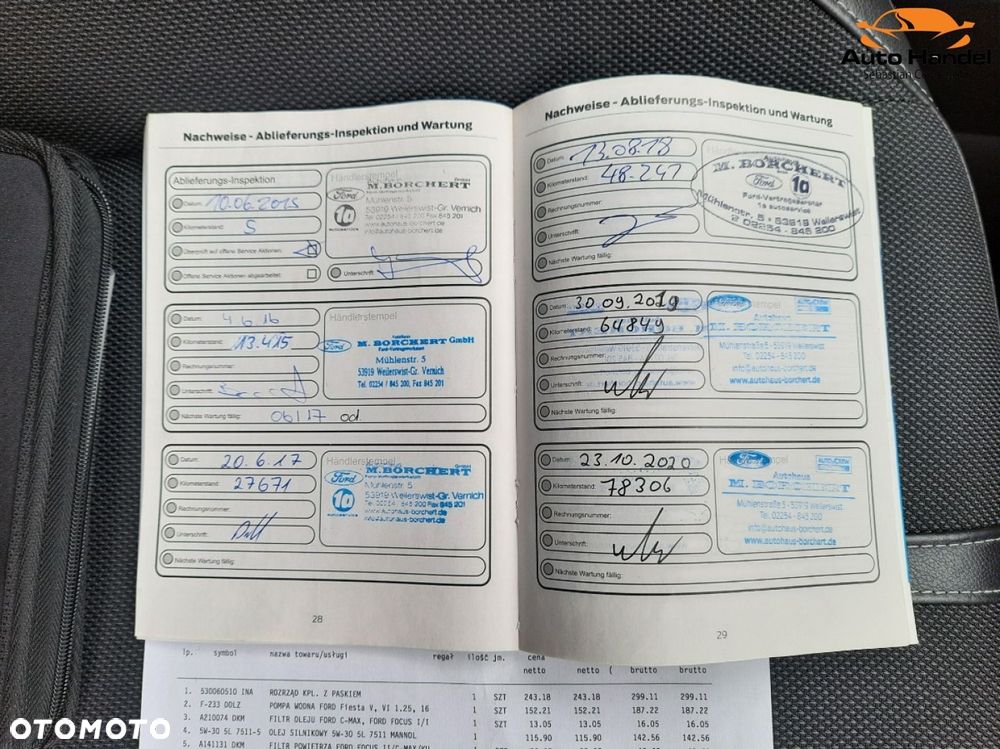 Auto Handel
Nachweise - Ablieferungs-Inspektion und Wartung
Ablieferungs-Inspektion
Datum: 10.06.2015
Kilometerstand: 5
Überprüft auf offene Service Aktionen:
Offene Service Aktionen abgearbeitet:
Händlerstempel
Ford
M. BORCHERT GmbH
Mühlenstr. 5
53919 Weilerswist-Gr. Vernich
Tel. 02254 / 845 200 Fax 845 201
www.autohaus-borchert.de
info@autohaus-borchert.de
10
autoservice
Unterschrift:
Datum: 4.6.16
Kilometerstand: 13.415
Rechnungsnummer:
Unterschrift:
Nächste Wartung fällig: 06/17 od.
Händlerstempel
Ford
M. BORCHERT GmbH
Ford-Vertragswerkstatt
Mühlenstr. 5
53919 Weilerswist-Gr. Vernich
Tel. 02254 / 845 200, Fax 845 201
Datum: 20.6.17
Kilometerstand: 27671
Rechnungsnummer:
Unterschrift:
Nächste Wartung fällig:
Händlerstempel
Ford
M. BORCHERT GmbH
Mühlenstr. 5
53919 Weilerswist-Gr. Vernich
Tel. 02254 / 845 200 Fax 845 201
www.autohaus-borchert.de
info@autohaus-borchert.de
10
autoservice
28
Nachweise - Ablieferungs-Inspektion und Wartung
Datum: 13.08.18
Kilometerstand: 48.247
Rechnungsnummer:
Unterschrift:
Nächste Wartung fällig:
Händlerstempel
Autohaus
M. BORCHERT
Ford 10
Ford-Vertragspartner
1a autoservice
Mühlenstr. 5 - 53919 Weilerswist
02254 - 845 200
Datum: 30.09.2019
Kilometerstand: 64849
Rechnungsnummer:
Unterschrift:
Nächste Wartung fällig:
Autohaus
M. BORCHERT
Mühlenstraße 5 - 53919 Weilerswist
Tel. 02254 - 845 200
info@autohaus-borchert.de
www.autohaus-borchert.de
Datum: 23.10.2020
Kilometerstand: 78306
Rechnungsnummer:
Unterschrift:
Nächste Wartung fällig:
Ford
Autohaus
M. BORCHERT
Mühlenstraße 5 - 53919 Weilerswist
Tel. 02254 - 845 200
info@autohaus-borchert.de
www.autohaus-borchert.de
29
lp. symbol nazwa towaru/usługi regał ilość jm. cena netto netto ( brutto brutto
1. 530060510 INA ROZRZĄD KPL. Z PASKIEM 1 SZT 243.18 243.18 299.11 299.11
2. F-233 DOLZ POMPA WODNA FORD Fiesta V, VI 1.25, 16 1 SZT 152.21 152.21 187.22 187.22
3. A210074 DKM FILTR OLEJU FORD C-MAX, FORD FOCUS I/I 1 SZT 13.05 13.05 16.05 16.05
4. 5W-30 5L 7511-5 OLEJ SILNIKOWY 5W-30 5L 7511 MANNOL 1 115.90 115.90 142.56 142.56
5. A141131 DKM FILTR POWIETRZA FORD FOCUS II/C-MAX/KU
OTOMOTO